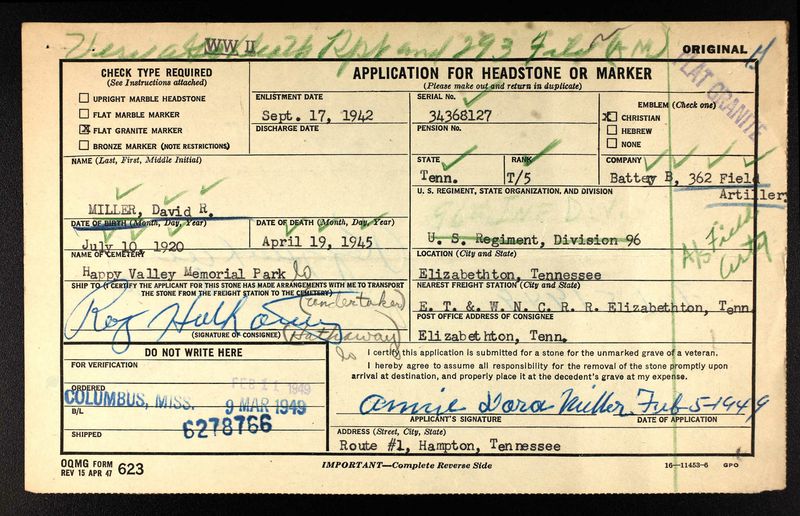 WW II
Rpt and 293 File
ORIGINAL
FLAT GRANITE
CHECK TYPE REQUIRED
(See Instructions attached)
UPRIGHT MARBLE HEADSTONE
FLAT MARBLE MARKER
X FLAT GRANITE MARKER
BRONZE MARKER (NOTE RESTRICTIONS)
APPLICATION FOR HEADSTONE OR MARKER
(Please make out and return in duplicate)
ENLISTMENT DATE
Sept. 17, 1942
DISCHARGE DATE
SERIAL No.
34368127
PENSION No.
EMBLEM (Check one)
X CHRISTIAN
HEBREW
NONE
NAME (Last, First, Middle Initial)
MILLER, David R.
STATE
Tenn.
RANK
T/5
COMPANY
Battey B, 362 Field
Artiller
U. S. REGIMENT, STATE ORGANIZATION, AND DIVISION
U. S. Regiment, Division 96
A/S Field
Arty
DATE OF BIRTH (Month, Day, Year)
July 10, 1920
DATE OF DEATH (Month, Day, Year)
April 19, 1945
NAME OF CEMETERY
Happy Valley Memorial Park
LOCATION (City and State)
Elizabethton, Tennessee
SHIP TO (I CERTIFY THE APPLICANT FOR THIS STONE HAS MADE ARRANGEMENTS WITH ME TO TRANSPORT
THE STONE FROM THE FREIGHT STATION TO THE CEMETERY)
(undertaker)
Roy Hathaway
(Hathaway)
(SIGNATURE OF CONSIGNEE)
NEAREST FREIGHT STATION (City and State)
E. T. &. W. N. C. R. R. Elizabethton, Tenn.
POST OFFICE ADDRESS OF CONSIGNEE
Elizabethton, Tenn.
DO NOT WRITE HERE
FOR VERIFICATION
FEB 11 1949
ORDERED
COLUMBUS, MISS. 9 MAR 1949
B/L
6278766
SHIPPED
I certify this application is submitted for a stone for the unmarked grave of a veteran.
I hereby agree to assume all responsibility for the removal of the stone promptly upon
arrival at destination, and properly place it at the decedent's grave at my expense.
Annie Dora Miller Feb-5-1949
APPLICANT'S SIGNATURE
DATE OF APPLICATION
ADDRESS (Street, City, State)
Route #1, Hampton, Tennessee
OQMG FORM
REV 15 APR 47 623
IMPORTANT—Complete Reverse Side
16—11453-6 GPO